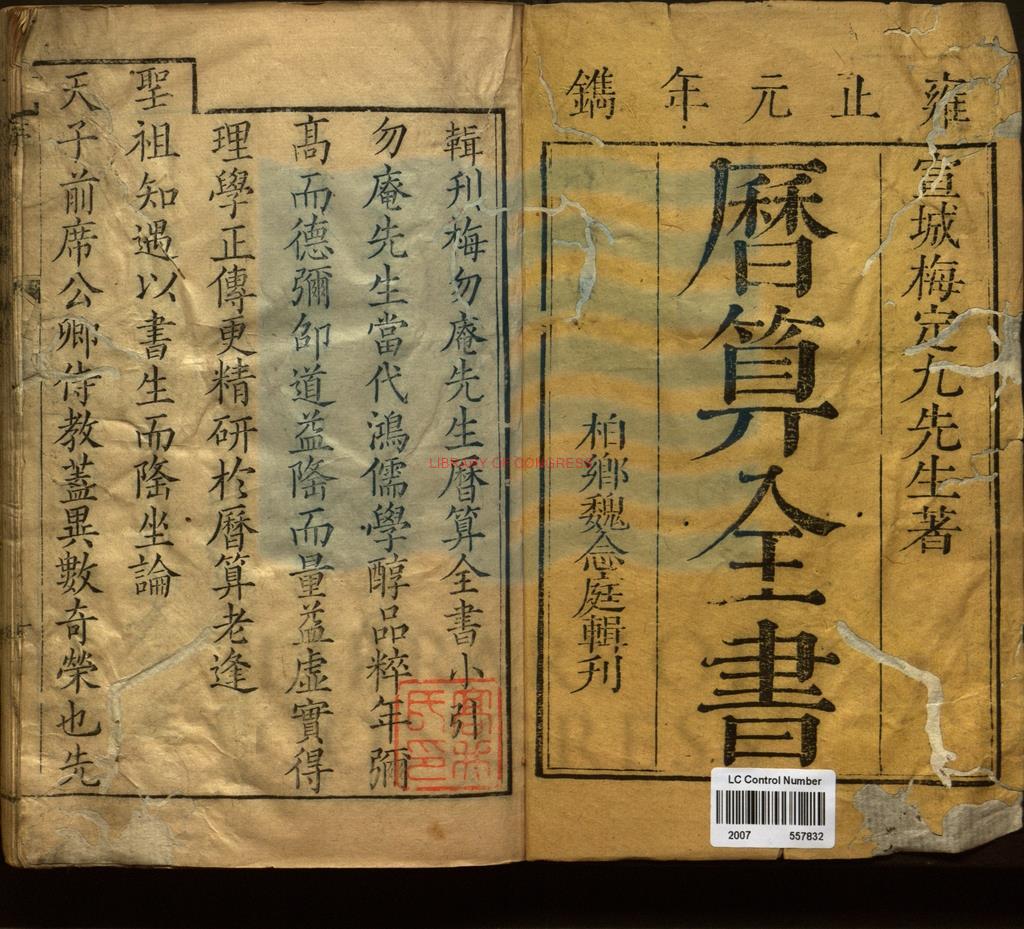 雍正元年鐫
宣城梅定九先生著
曆算全書
柏鄉魏念庭輯刊
輯刊梅勿庵先生曆算全書小引
勿庵先生當代鴻儒學醇品粹年彌
高而德彌卲道益隆而量益虛實得
理學正傳更精研於曆算老逢
聖祖知遇以書生而隆坐論
天子前席公卿侍教蓋異數奇榮也先
LIBRARY OF CONGRESS
LC Control Number
2007 557832